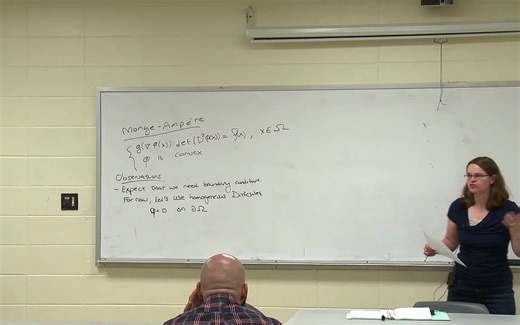 Monge-Ampère
g(∇φ(x)) det(D²φ(x)) = f(x), x∈Ω
φ is convex
Observations
- Expect that we need boundary conditions
For now, let's use homogeneous Dirichlet
φ=0 on ∂Ω